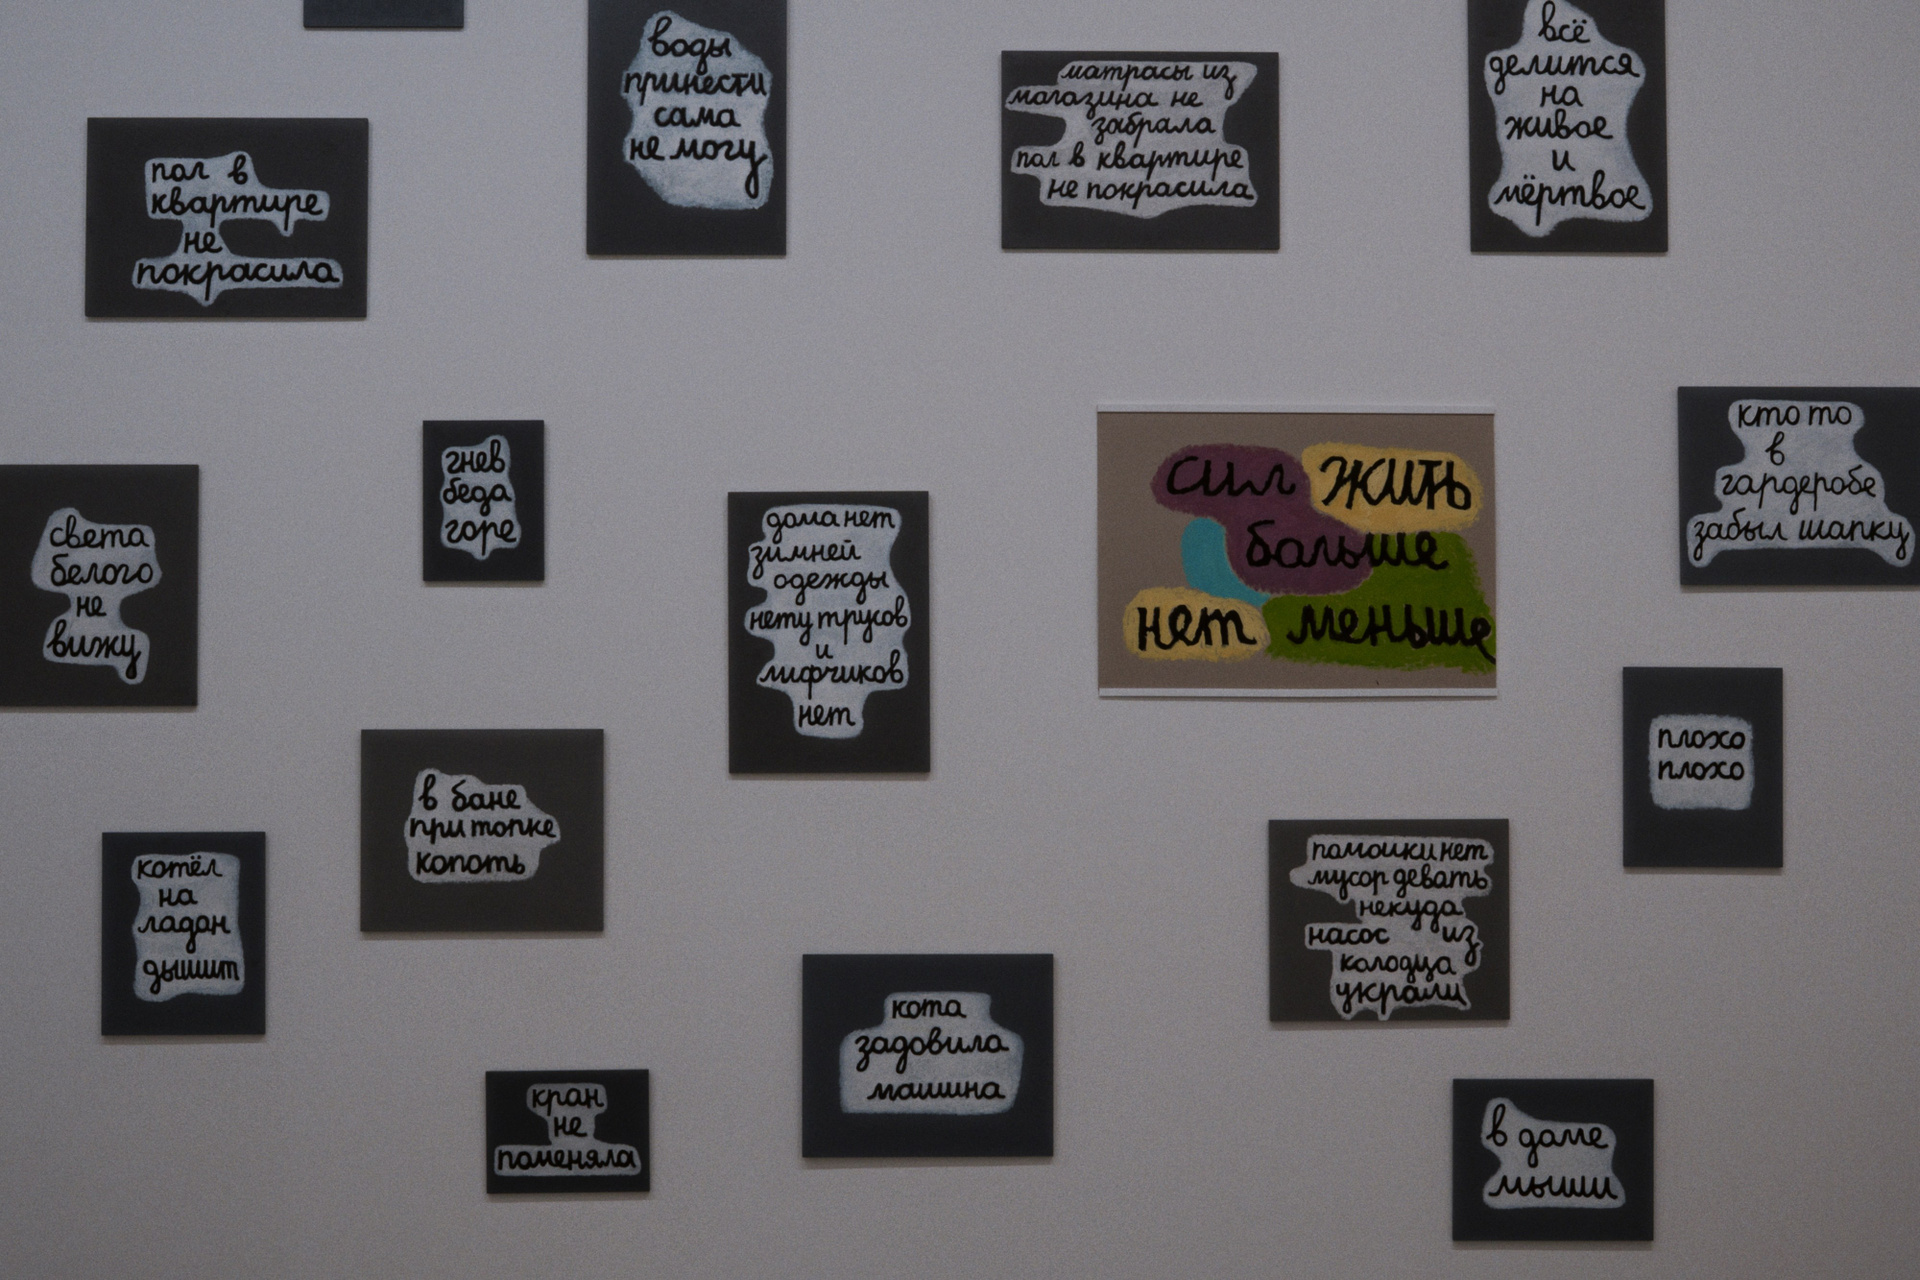 воды
принести
сама
не могу
матрасы из
магазина не
забрала
пол в квартире
не покрасила
всё
делится
на
живое
и
мёртвое
пол в
квартире
не
покрасила
света
белого
не
вижу
гнев
беда
горе
дома нет
зимней
одежды
нету трусов
и
лифчиков
нет
сил жить
больше
нет меньше
кто то
в
гардеробе
забыл шапку
плохо
плохо
в бане
при топке
копоть
котёл
на
ладан
дышит
помойки нет
мусор девать
некуда
насос из
колодца
украли
кота
задовила
машина
кран
не
поменяла
в доме
мыши